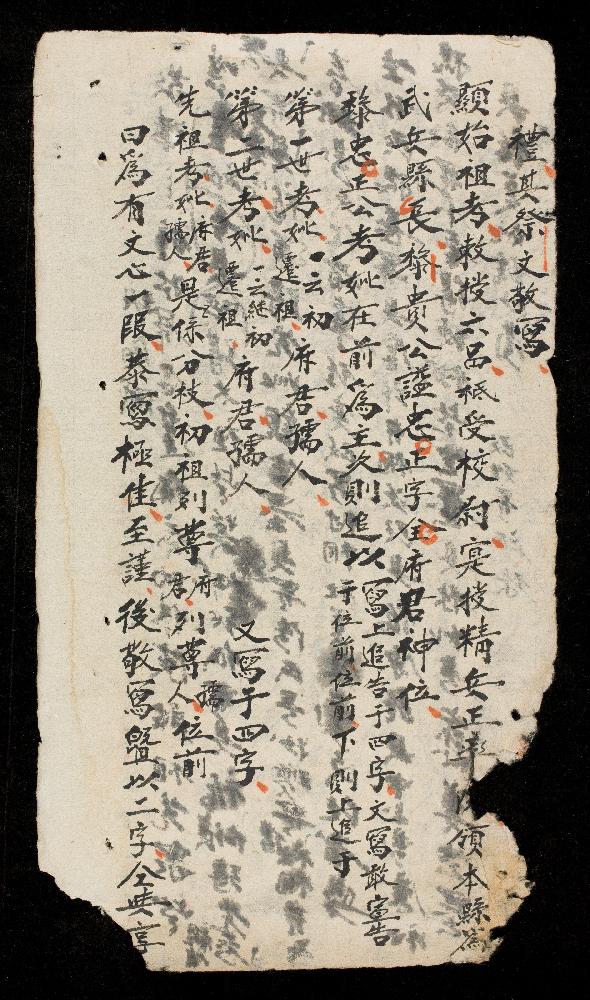 禮其祭文敬寫
顯始祖考敕授六品祇受校尉寔授精兵正率領本縣為
武兵縣長黎貴公謚忠正字仝府君神位
黎忠正公考妣在前為主次則追以寫上追告于四字文寫敢宻告于位前位前下則上追于
第一世考妣一云初遷祖府君孺人
第二世考妣一云継初遷祖府君孺人 又寫于四字
先祖考妣府君孺人是係分枝初祖列尊府君列尊孺人位前
曰為有文心一段恭寫極佳至謹後敬寫暨以二字仝共享